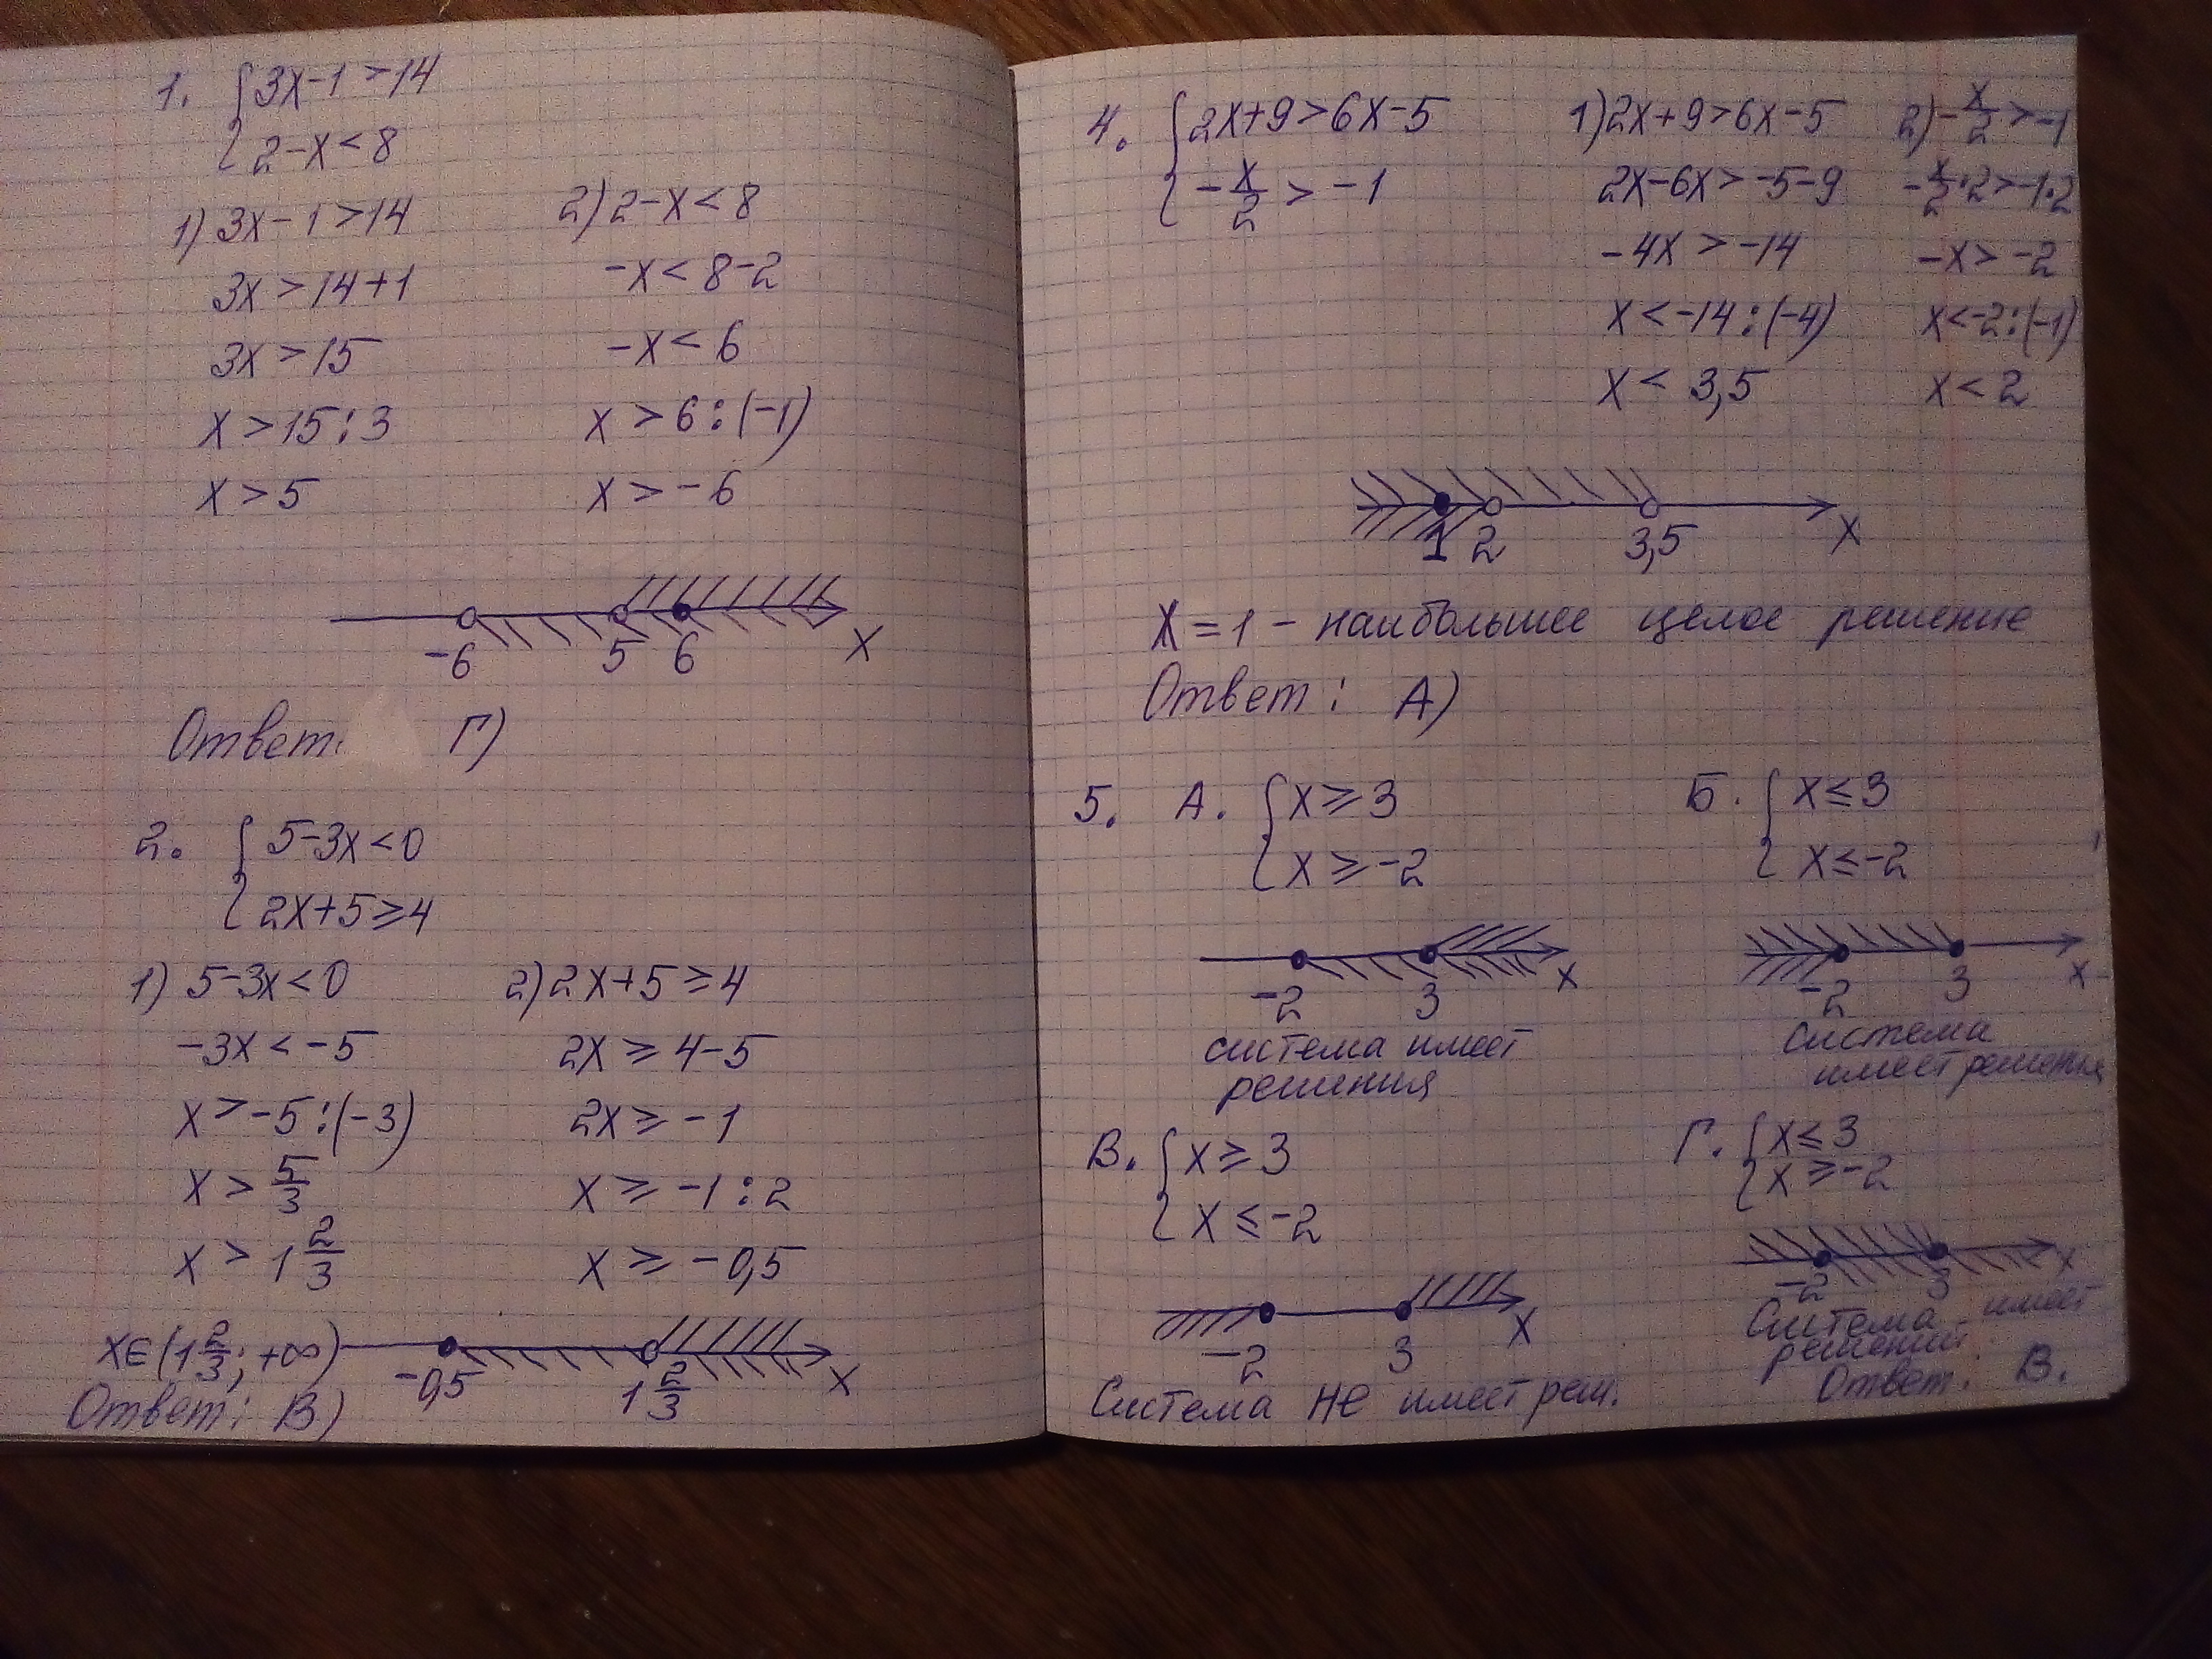 1. {3x-1>14
{2-x<8
1) 3x-1>14
3x>14+1
3x>15
x>15:3
x>5
2) 2-x<8
-x<8-2
-x<6
x>6:(-1)
x>-6
-6 5 6 x
Ответ: Г)
2. {5-3x<0
{2x+5≥4
1) 5-3x<0
-3x<-5
x>-5:(-3)
x>5/3
x>1 2/3
2) 2x+5≥4
2x≥4-5
2x≥-1
x≥-1:2
x≥-0,5
x∈(1 2/3; +∞)
-0,5 1 2/3 x
Ответ: В)
4. {2x+9>6x-5
{-x/2>-1
1) 2x+9>6x-5
2x-6x>-5-9
-4x>-14
x<-14:(-4)
x<3,5
2) -x/2>-1
-x/2·2>-1·2
-x>-2
x<-2:(-1)
x<2
1 2 3,5 x
x=1 - наибольшее целое решение
Ответ: А)
5. А. {x≥3
{x≥-2
-2 3 x
система имеет
решения
Б. {x≤3
{x≤-2
-2 3 x
система
имеет решения
В. {x≥3
{x≤-2
-2 3 x
Система НЕ имеет реш.
Г. {x≤3
{x≥-2
-2 3 x
Система имеет
решений
Ответ: В.